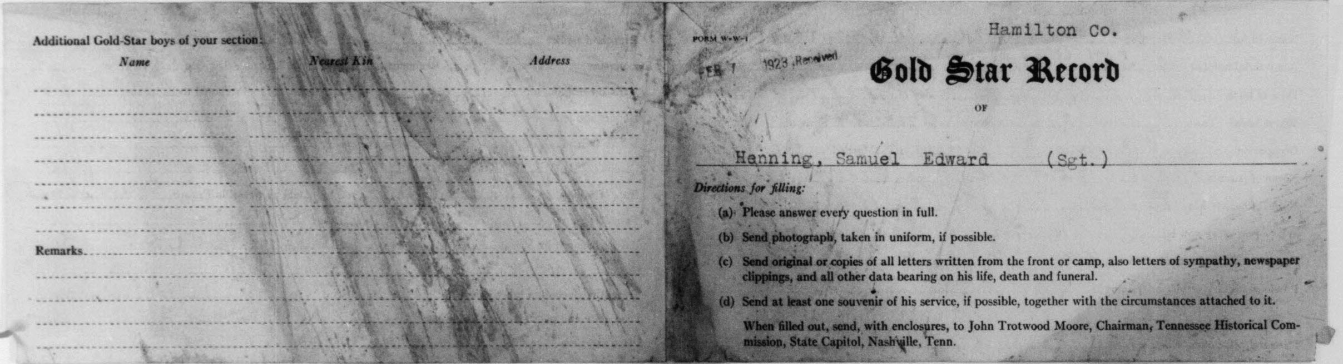 Additional Gold-Star boys of your section:
Name Nearest Kin Address
Remarks
Hamilton Co.
FORM W-W-1
FEB 7 1923 Received
Gold Star Record
OF
Henning, Samuel Edward (Sgt.)
Directions for filling:
(a) Please answer every question in full.
(b) Send photograph, taken in uniform, if possible.
(c) Send original or copies of all letters written from the front or camp, also letters of sympathy, newspaper
clippings, and all other data bearing on his life, death and funeral.
(d) Send at least one souvenir of his service, if possible, together with the circumstances attached to it.
When filled out, send, with enclosures, to John Trotwood Moore, Chairman, Tennessee Historical Com-
mission, State Capitol, Nashville, Tenn.